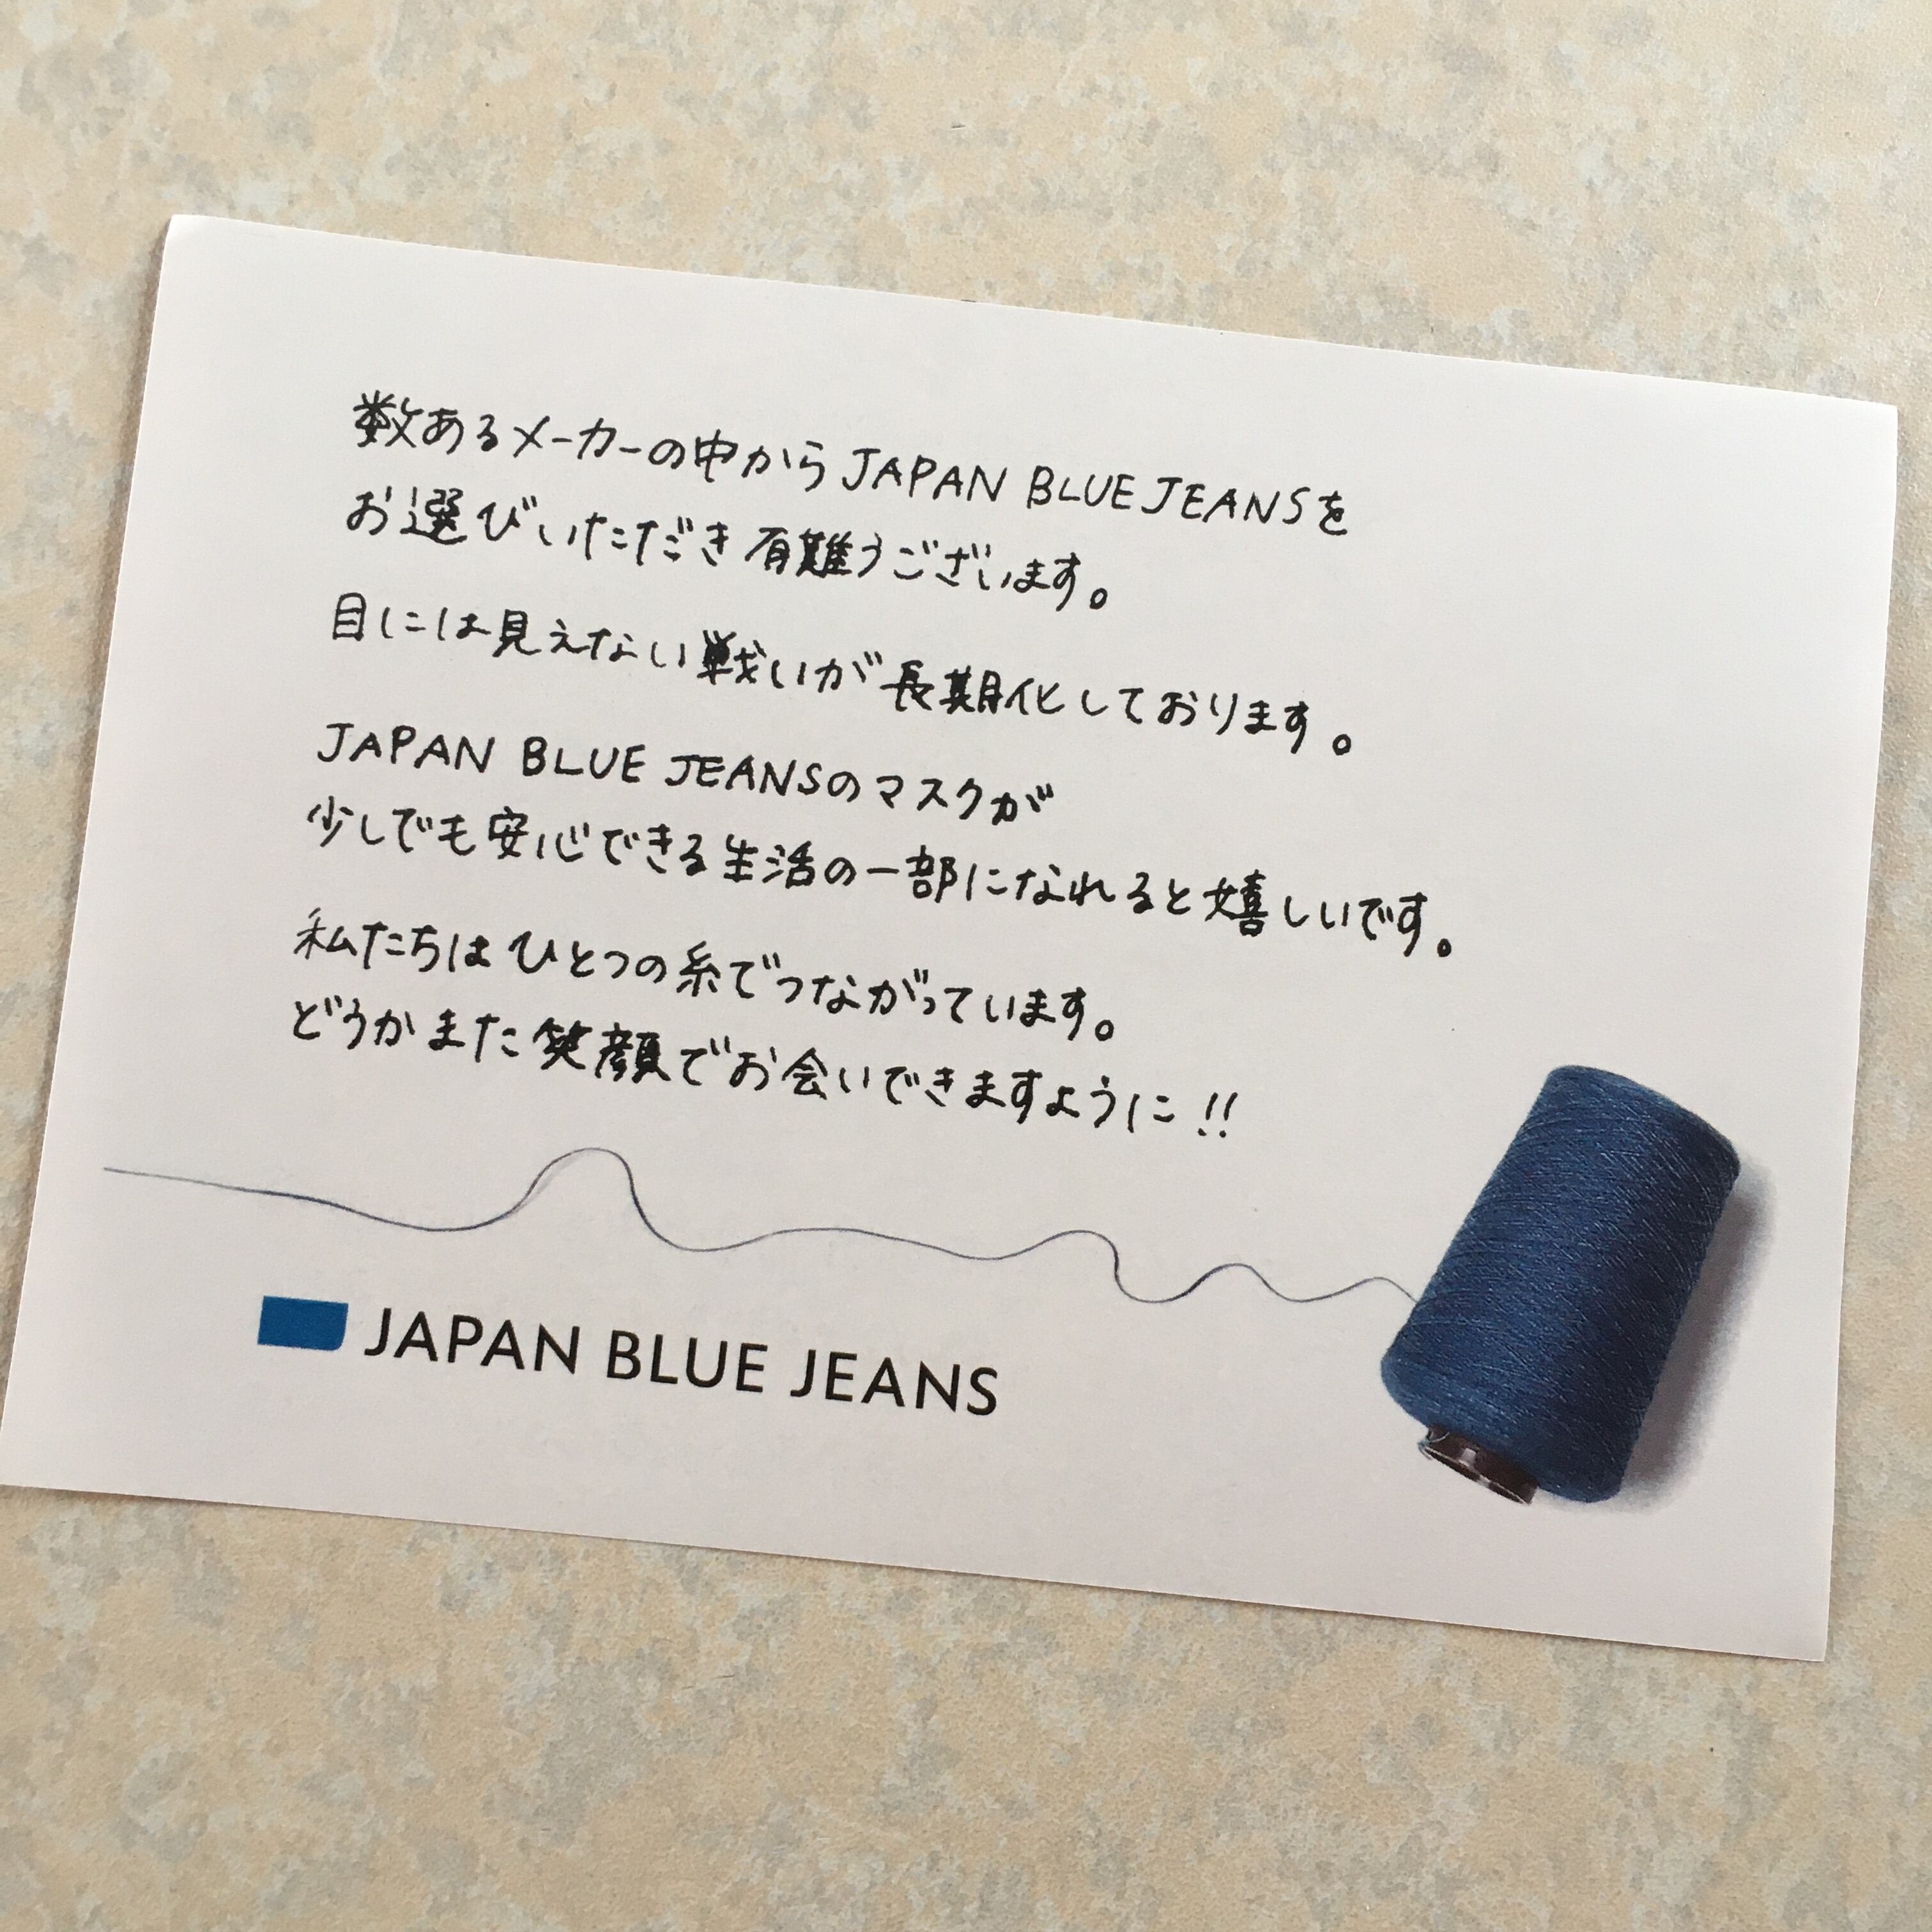 数あるメーカーの中から JAPAN BLUE JEANSを
お選びいただき有難うございます。
目には見えない戦いが長期化しております。
JAPAN BLUE JEANSのマスクが
少しでも安心できる生活の一部になれると嬉しいです。
私たちはひとつの糸でつながっています。
どうかまた笑顔でお会いできますように!!
JAPAN BLUE JEANS